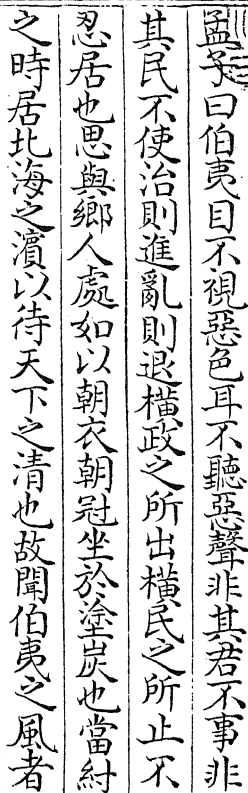 孟子曰伯夷目不視惡色耳不聽惡聲非其君不事非
其民不使治則進亂則退橫政之所出橫民之所止不
忍居也思與鄉人處如以朝衣朝冠坐於塗炭也當紂
之時居北海之濱以待天下之清也故聞伯夷之風者